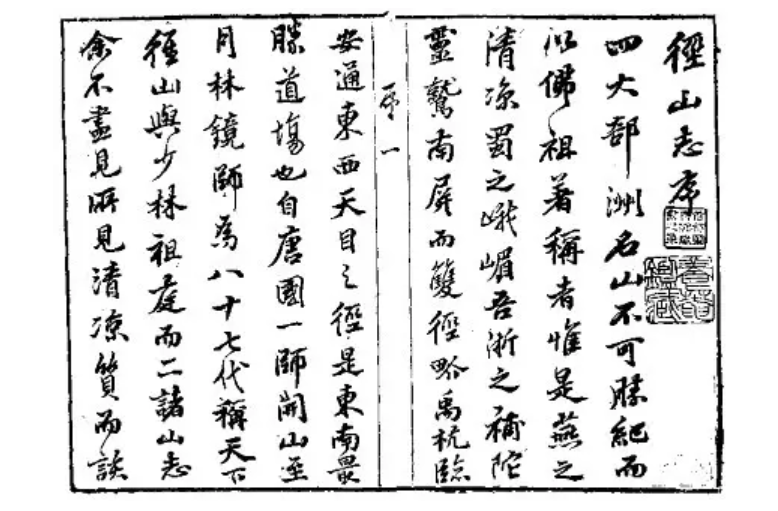 徑山志序
四大部洲名山不可勝紀而
以佛祖著稱者惟是燕之
清凉蜀之峨嵋吾浙之補陀
靈鷲南屏而雙徑畧禹杭臨
序一
安通東西天目之徑是東南最
勝道塲也自唐國一師開山至
月林鏡師爲八十七代稱天下
徑山與少林祖庭而二諸山志
余不盡見所見清凉質而談